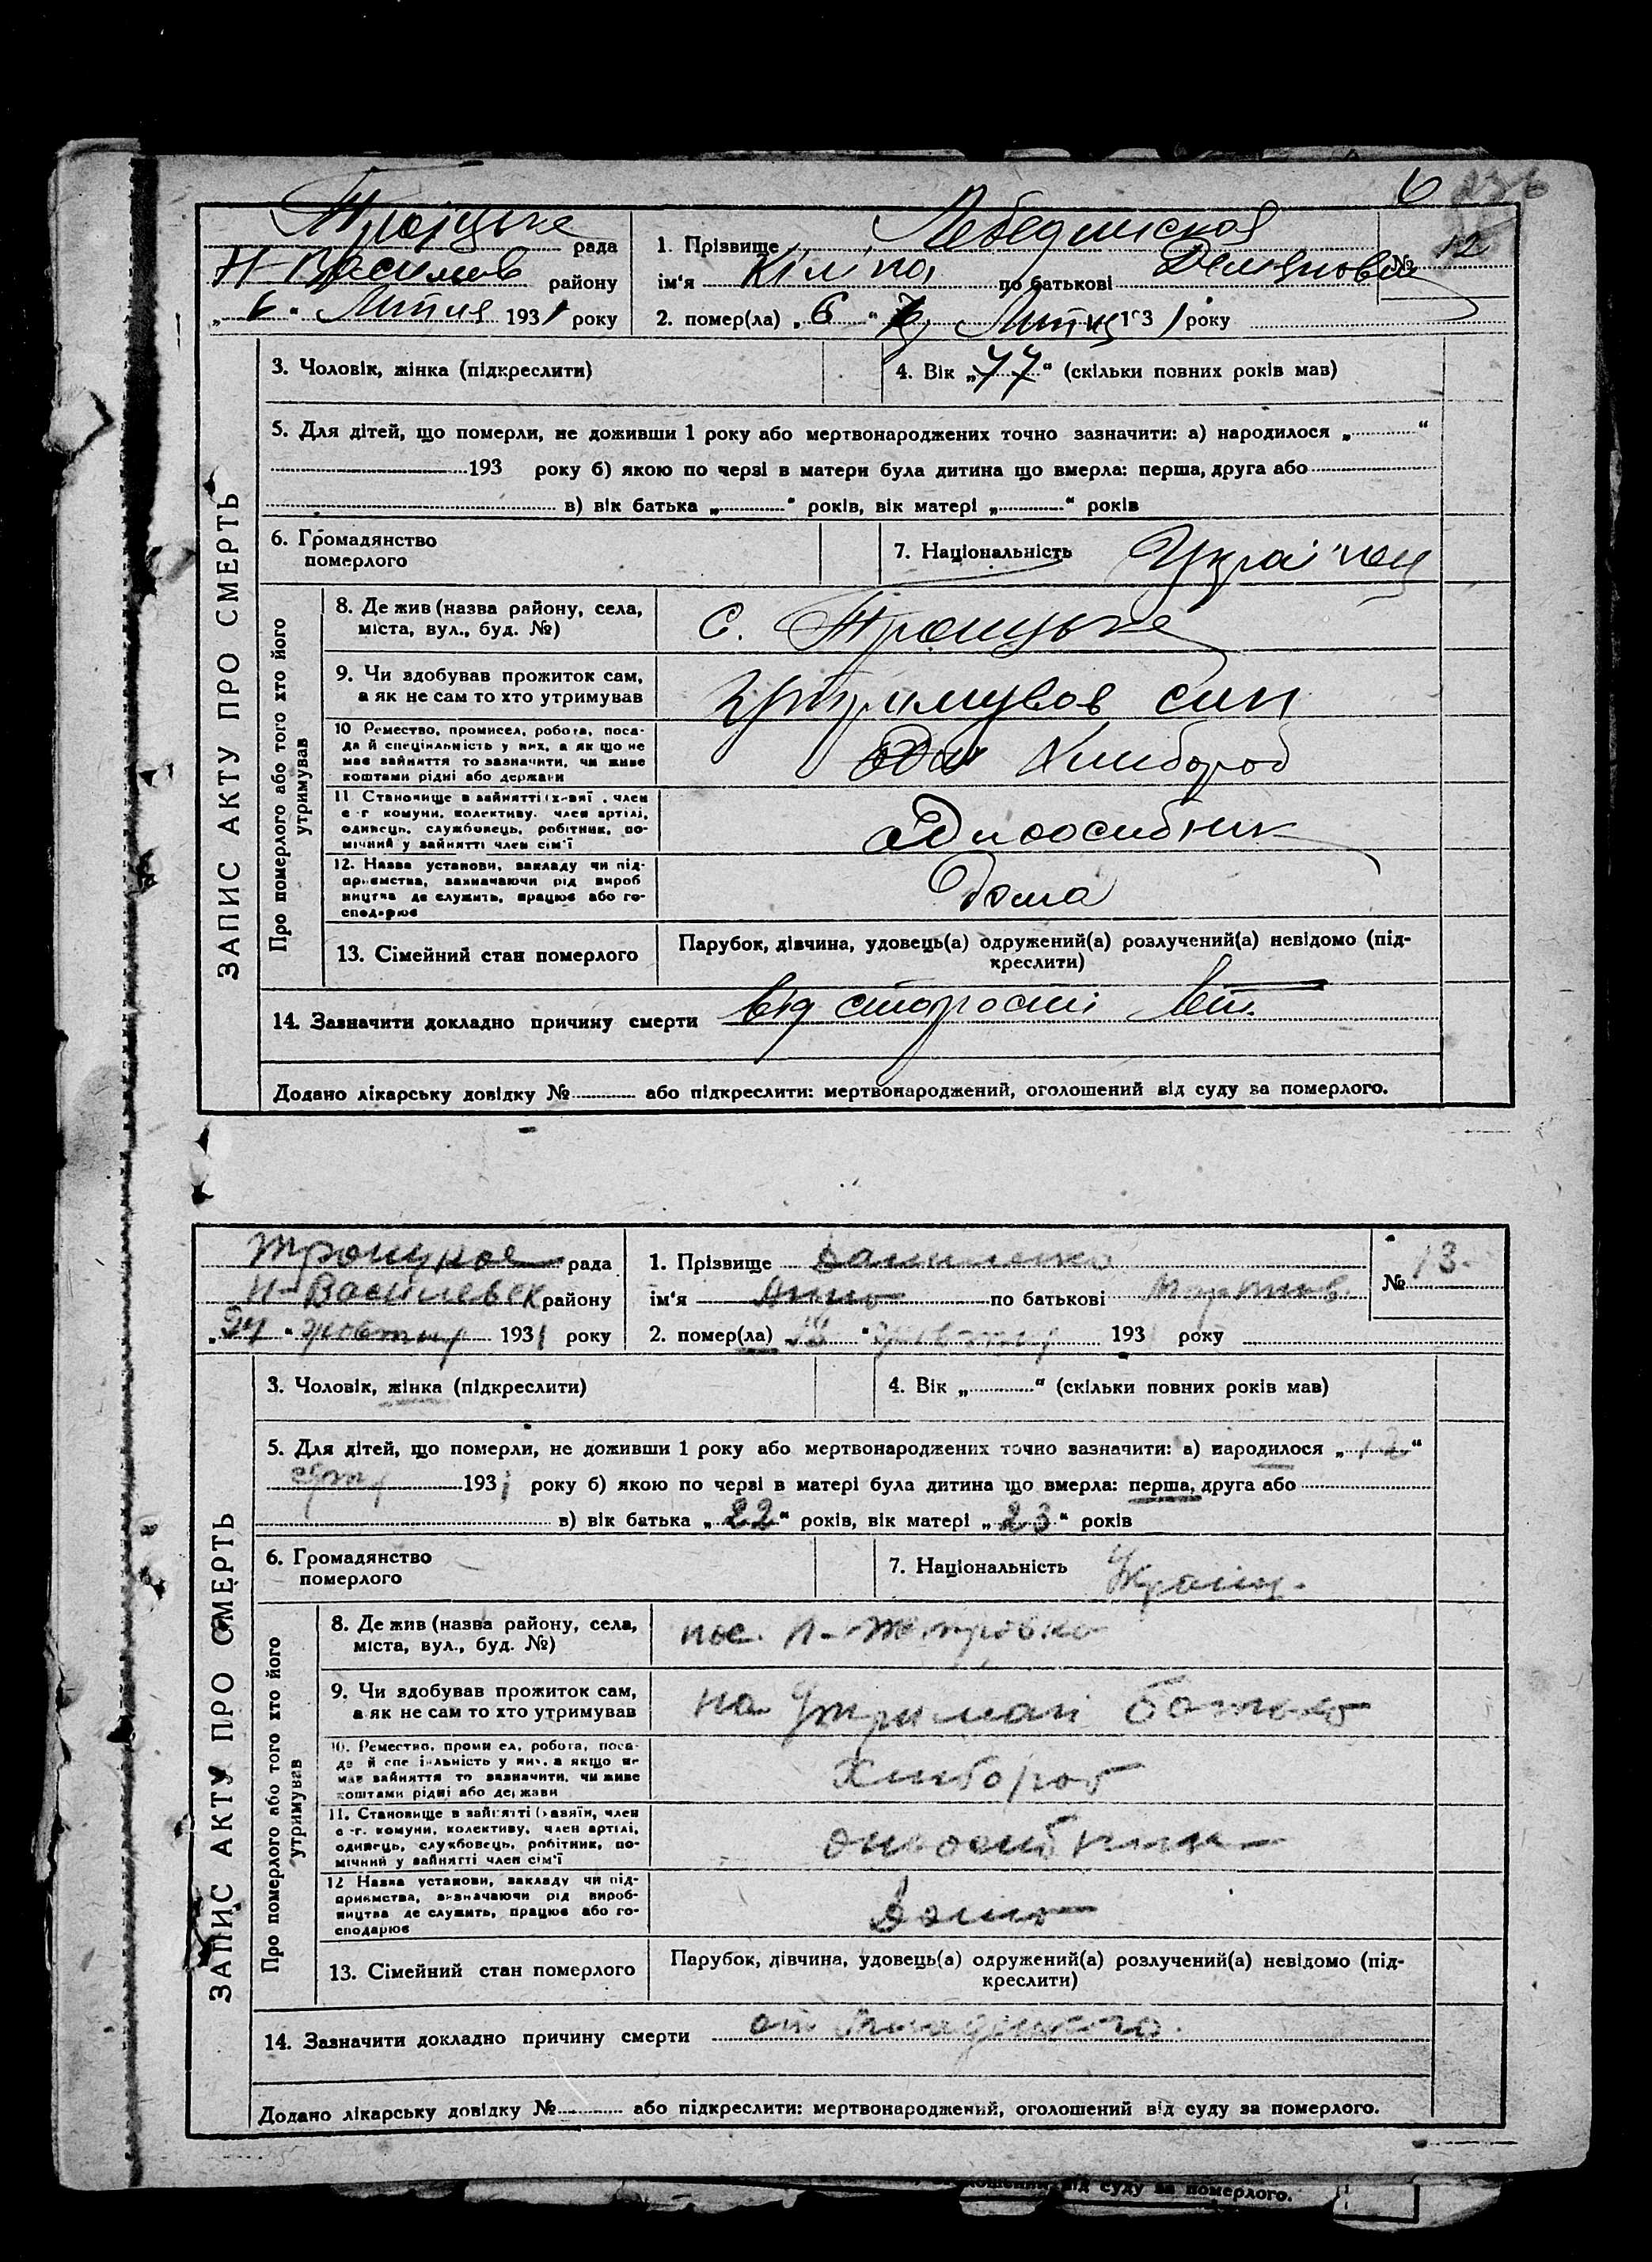 6
Троїцьке рада
Н-Василів району
„6“ Липня 1931 року
1. Прізвище Лебединская
№ 12
ім'я по батькові
2. помер(ла) „6“ Липц 1931 року
ЗАПИС АКТУ ПРО СМЕРТЬ
3. Чоловік, жінка (підкреслити)
4. Вік „77“ (скільки повних років мав)
5. Для дітей, що померли, не доживши 1 року або мертвонароджених точно зазначити: а) народилося „ “
193 року б) якою по черзі в матери була дитина що вмерла: перша, друга або
в) вік батька „ “ років, вік матері „ “ років
6. Громадянство
померлого
7. Національність Украінец
Про померлого або того хто його
утримував
8. Де жив (назва району, села,
міста, вул., буд. №)
с. Троицьке
9. Чи здобував прожиток сам,
а як не сам то хто утримував
утримував син
10 Ремество, промисел, робота, поса-
да й спеціяльність у них, а як що не
має зайняття то зазначити, чи живе
коштами рідні або держави
Хлибороб
11 Становище в зайнятті (х-вяї , член
с-г комуни, колективу, член артілі,
одинець, службовець, робітник, по-
мічний у зайнятті член сім'ї
Одноосибник
12. Назва установи, закладу чи під-
приємства, зазначаючи рід вироб
ництва де служить, працює або го-
сподарює
Дома
13. Сімейний стан померлого
Парубок, дівчина, удовець(а) одружений(а) розлучений(а) невідомо (під-
креслити)
14. Зазначити докладно причину смерти від старости лет.
Додано лікарську довідку № або підкреслити: мертвонароджений, оголошений від суду за померлого.
Троицкое рада
Н-Василевск району
„24“ жовтня 1931 року
1. Прізвище Даниленко
№ 13.
ім'я Анна по батькові Мартинов.
2. помер(ла) жовтня 193 року
ЗАПИС АКТУ ПРО СМЕРТЬ
3. Чоловік, жінка (підкреслити)
4. Вік „ “ (скільки повних років мав)
5. Для дітей, що померли, не доживши 1 року або мертвонароджених точно зазначити: а) народилося „12“
1931 року б) якою по черзі в матері була дитина що вмерла: перша, друга або
в) вік батька „22“ років, вік матері „23“ років
6. Громадянство
померлого
7. Національність Украінц.
Про померлого або того хто його
утримував
8. Де жив (назва району, села,
міста, вул., буд. №)
пос.
9. Чи здобував прожиток сам,
а як не сам то хто утримував
на утримані батька
10. Ремество, проми ел, робота, поса-
да й спе і-льність у них, а якщо не
має зайняття то зазначити, чи живе
коштами рідні або держави
Хлибороб
11. Становище в зайнятті (хазяїн, член
с-г. комуни, колективу, член артілі,
одинець, службовець, робітник, по-
мічний у зайнятті член сім'ї
12 Назва установи, закладу чи під-
приємства, зазначаючи рід вироб-
ництва де служить, працює або го-
сподарює
Дома
13. Сімейний стан померлого
Парубок, дівчина, удовець(а) одружений(а) розлучений(а) невідомо (під-
креслити)
14. Зазначити докладно причину смерти от
Додано лікарську довідку № або підкреслити: мертвонароджений, оголошений від суду за померлого.
від суду за померлого.